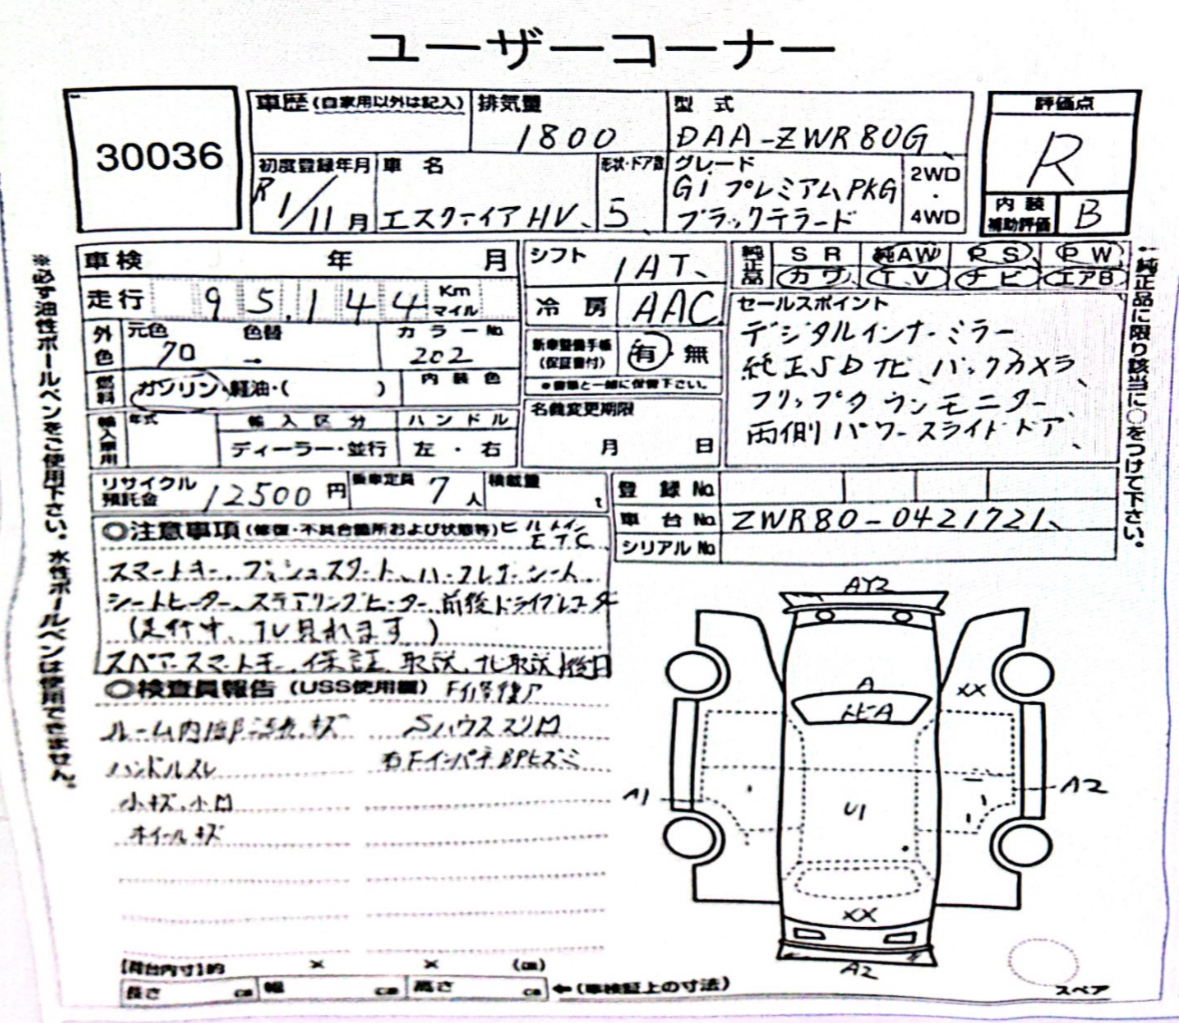 ユーザーコーナー
30036
車歴 (自家用以外は記入)
排気量
1800
型式
DAA-ZWR80G
評価点
R
初度登録年月
R1/11月
車名
エスクァイアHV、
形状・ドア数
5
グレード
Gi プレミアムPKG
ブラックテラード
2WD
・
4WD
内装
補助評価
B
車検 年 月
シフト
1AT、
純正品
SR 純AW PS PW
カワ TV ナビ エアB
走行 95,144 Km
マイル
冷房 AAC
セールスポイント
デジタルインナーミラー
純正SDナビ、バックカメラ
フリップダウンモニター、
両側パワースライドドア、
外色
元色 70
色替 →
カラーNo. 202
新車整備手帳
(保証書付)
有・無
※書類と一緒に保管下さい。
燃料
ガソリン・軽油・( )
内装色
名義変更期限
月 日
輸入車用
年式
輸入区分
ディーラー・並行
ハンドル
左・右
リサイクル
預託金
12500円
乗車定員 7人
積載量 t
登録No.
車台No. ZWR80-0421721、
シリアルNo.
◎注意事項 (修復・不具合箇所および状態等) ビルトイン
ETC
スマートキー、プッシュスタート、ハーフレザーシート
シートヒーター、ステアリングヒーター、前後ドライブレコーダ
(走行中、TV見れます)
スペアースマートキー、保証、取説、ナビ取説後日
◎検査員報告 (USS使用欄)
F修復ア
ルーム内
キズ
Sハウススリ凹
ハンドルスレ
右FインパネBPヒズミ
小キズ、小凹
ホイールキズ
AY3
A
トビA
XX
A1
U1
A2
XX
A2
スペア
【荷台内寸】約 × × (cm)
長さ cm 幅 cm 高さ cm ←(車検証上の寸法)
※必ず油性ボールペンをご使用下さい。水性ボールペンは使用できません。
↑純正品に限り該当に○をつけて下さい。